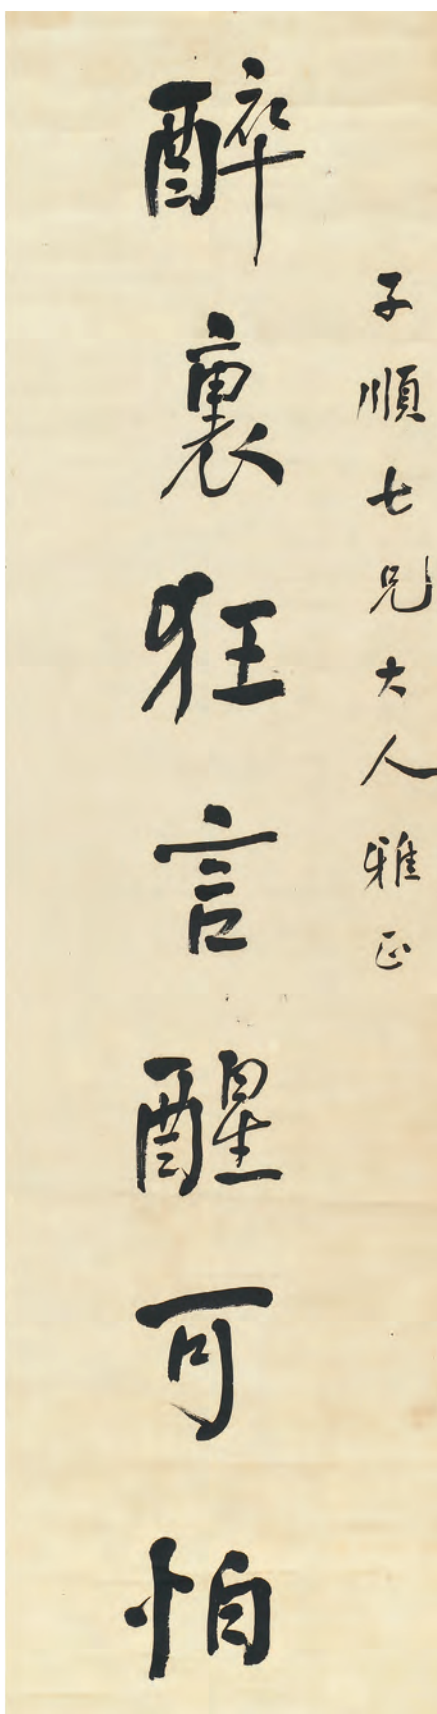 子順七兄大人雅正
醉裏狂言醒可怕